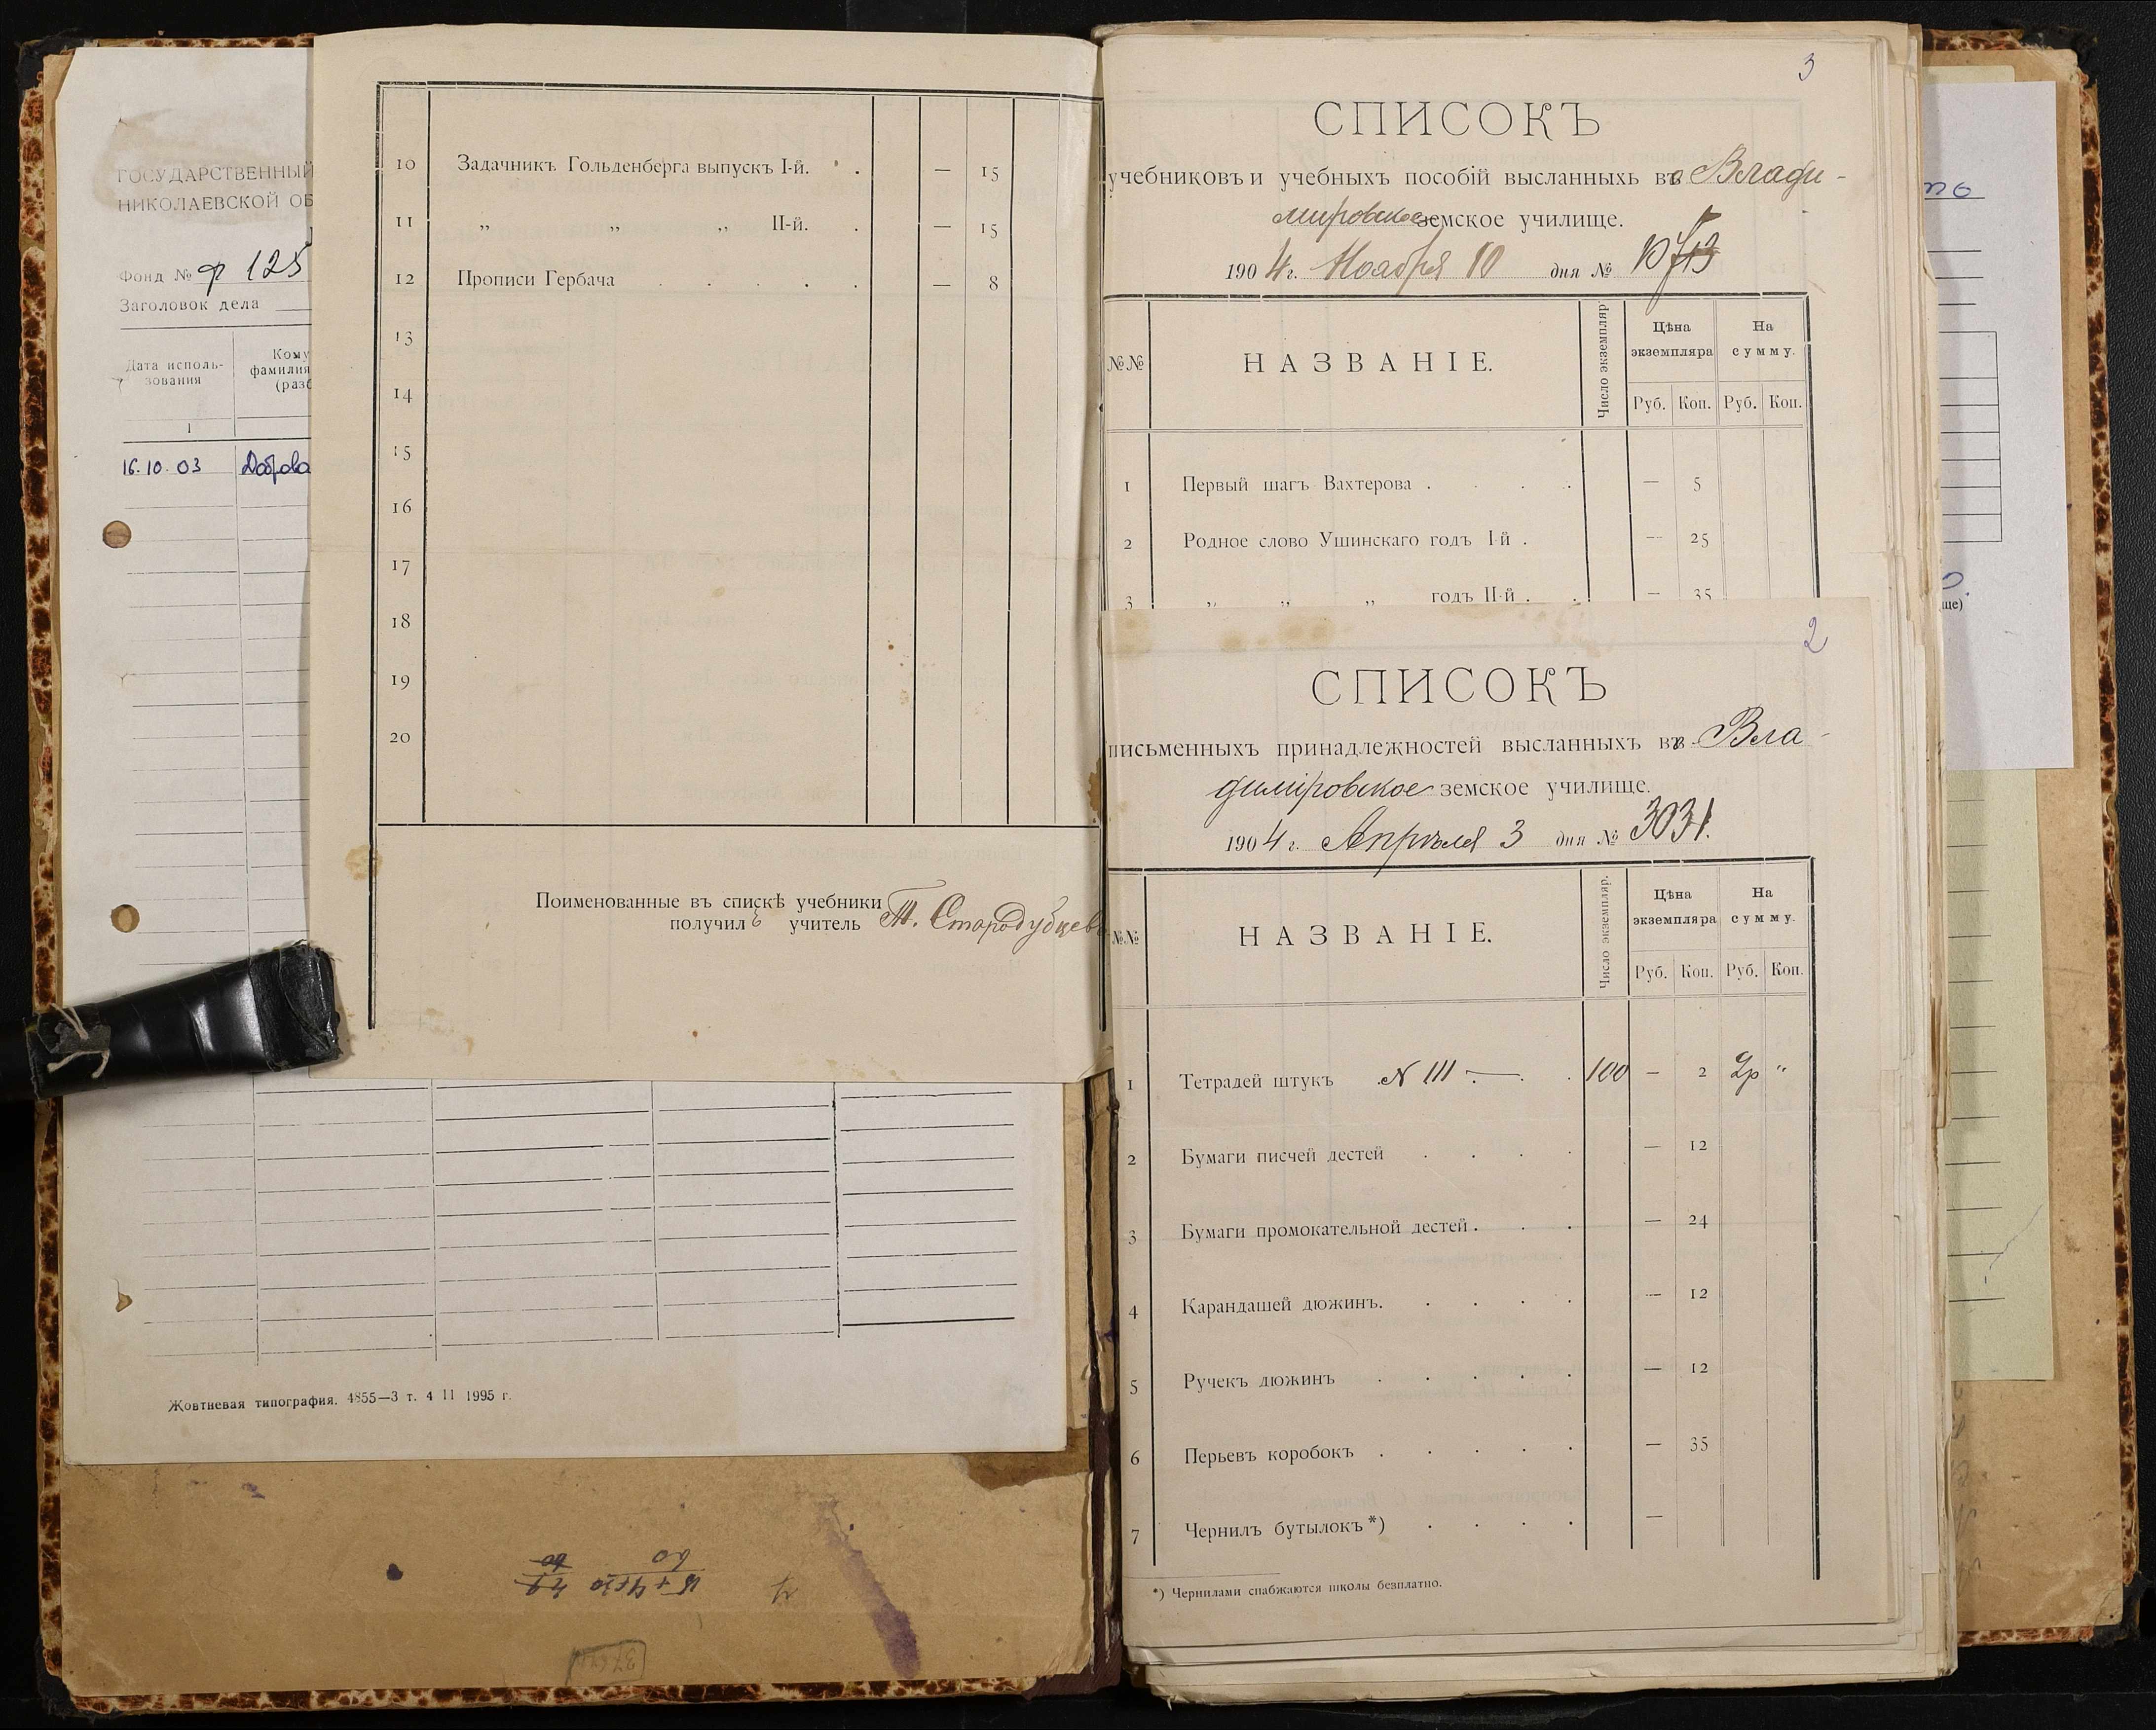 ГОСУДАРСТВЕННЫЙ
НИКОЛАЕВСКОЙ ОБ
Фонд № Ф 125
Заголовок дела
Дата исполь-
зования
Кому
фамилия
(разб
1
16.10.03 Доброва
10 Задачникъ Гольденберга выпускъ I-й. . — 15
11 „ „ „ II-й. . — 15
12 Прописи Гербача . . . . . — 8
13
14
15
16
17
18
19
20
Поименованные въ спискѣ учебники
получилъ учитель Т. Стародубцевъ
Жовтневая типография. 4855—3 т. 4 11 1995 г.
3
СПИСОКЪ
учебниковъ и учебныхъ пособій высланныхъ въ Влади-
мировское земское училище.
1904 г. Ноября 10 дня №
№№ НАЗВАНІЕ. Число экземпляр Цѣна экземпляра На сумму.
Руб. Коп. Руб. Коп.
1 Первый шагъ Вахтерова . . . . — 5
2 Родное слово Ушинскаго годъ I-й . — 25
3 „ „ „ годъ II-й . . — 35
2
СПИСОКЪ
письменныхъ принадлежностей высланныхъ въ Вла-
диміровское земское училище.
1904 г. Апрѣля 3 дня № 3031.
№№ НАЗВАНІЕ. Число экземпляр. Цѣна экземпляра На сумму.
Руб. Коп. Руб. Коп.
1 Тетрадей штукъ N III — . . 100 — 2 2р „
2 Бумаги писчей дестей . . . . — 12
3 Бумаги промокательной дестей . . . — 24
4 Карандашей дюжинъ. . . . . — 12
5 Ручекъ дюжинъ . . . . . — 12
6 Перьевъ коробокъ . . . . . — 35
7 Чернилъ бутылокъ *) . . . . —
*) Чернилами снабжаются школы безплатно.